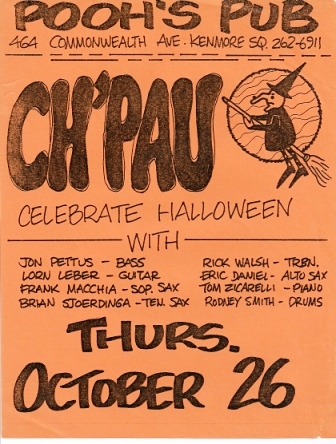 POOH'S PUB
464 COMMONWEALTH AVE. KENMORE SQ. 262-6911
CH'PAU
CELEBRATE HALLOWEEN
WITH
JON PETTUS - BASS
LORN LEBER - GUITAR
FRANK MACCHIA - SOP. SAX
BRIAN SJOERDINGA - TEN. SAX
RICK WALSH - TRBN.
ERIC DANIEL - ALTO SAX
TOM ZICARELLI - PIANO
RODNEY SMITH - DRUMS
THURS.
OCTOBER 26